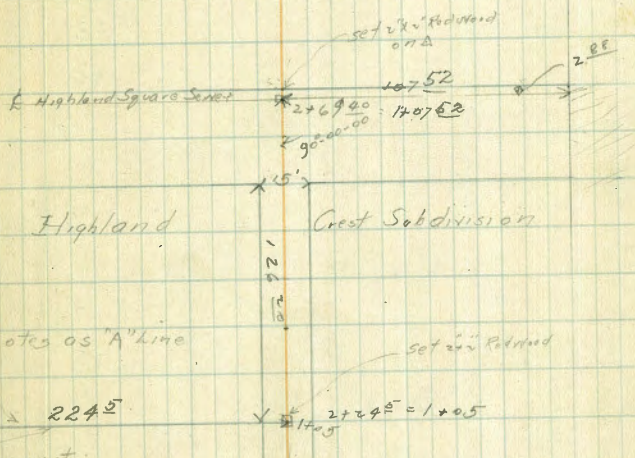 set 2"x2" Redwood
on Δ
2 88
107 52
℄ Highland Square Sewer
2+69 40 = 1+07 52
90°-00-00
15'
Highland Crest Subdivision
otes as "A" Line
set 2"x2" Redwood
Δ 224 5
2+24 5 = 1+05
1+05